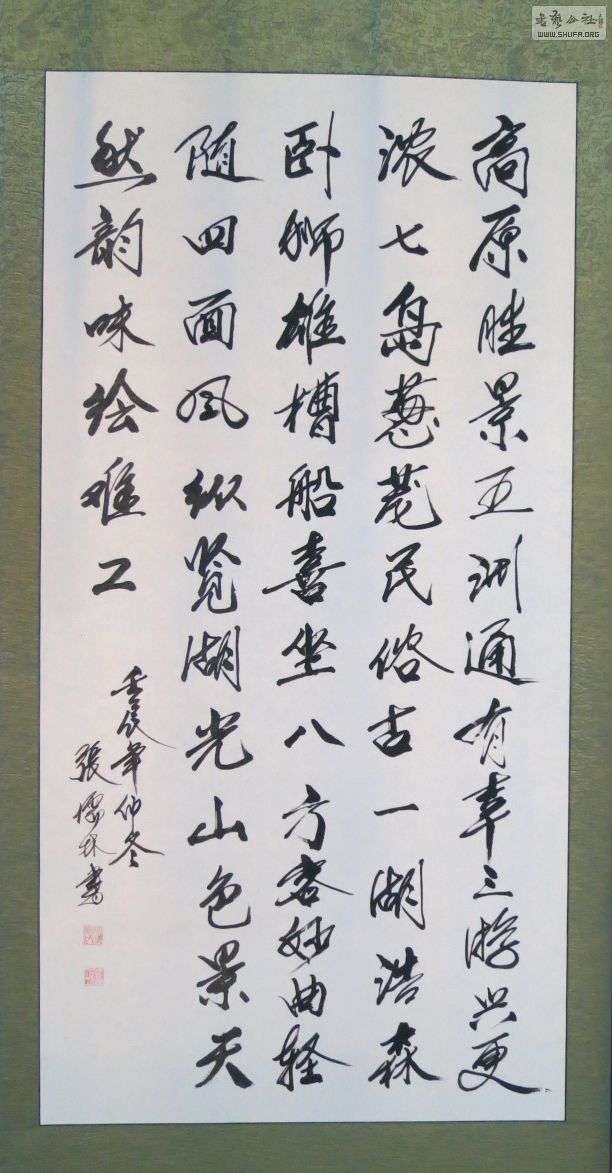 高原胜景五洲通有幸三游兴更
浓七岛葱茏民俗古一湖浩森
卧狮雄槽船喜坐八方客妙曲轻
随四面风纵览湖光山色景天
然韵味绘难工
壬辰年仲冬
張儒林書
WWW.SHUFA.ORG